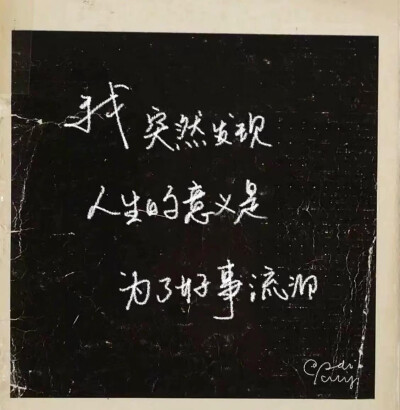 我突然发现
人生的意义是
为了好事流泪